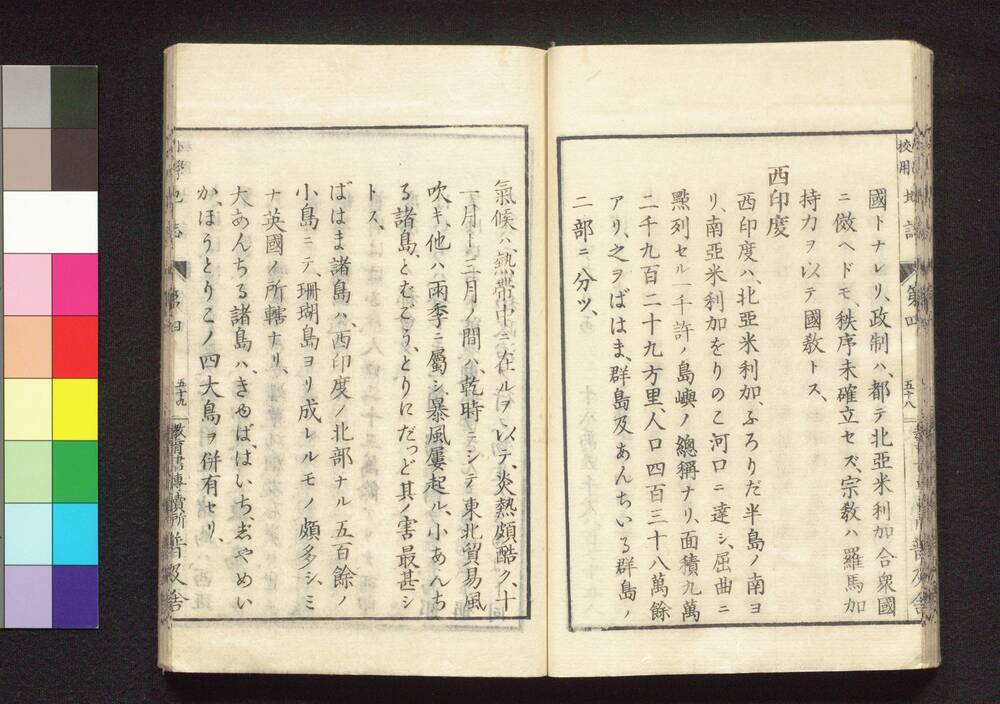 國トナレリ、政制ハ、都テ北亞米利加合衆國
ニ倣ヘドモ、秩序未確立セズ、宗敎ハ羅馬加
持力ヲ以テ國敎トス、
西印度
西印度ハ、北亞米利加、ふろりだ半島ノ南ヨ
リ、南亞米利加をりのこ河口ニ達シ、屈曲ニ
點列セル一千許ノ島嶼ノ總稱ナリ、面積九萬
二千九百二十九方里、人口四百三十八萬餘
アリ、之ヲばはま、群島及あんちいる群島ノ
二部ニ分ツ、
校用
地誌
第四
五十八
普及舍
氣候ハ、熱帶中ニ在ルヲ以テ、炎熱頗酷ク、十
一月ト二月ノ間ハ、乾時ニシテ東北貿易風
吹キ、他ハ雨季ニ屬シ、暴風屢起ル、小あんち
る諸島、とむこう、とりにだっど其ノ害最甚シ
トス、
ばはま諸島ハ、西印度ノ北部ナル五百餘ノ
小島ニテ、珊瑚島ヨリ成レルモノ頗多シ、ミ
ナ英國ノ所轄ナリ、
大あんちる諸島ハ、きゅば、はいち、志やめい
か、ほうとりこノ四大島ヲ併有セリ、
小學地誌
第四
五十九
敎育書專賣所普及舍